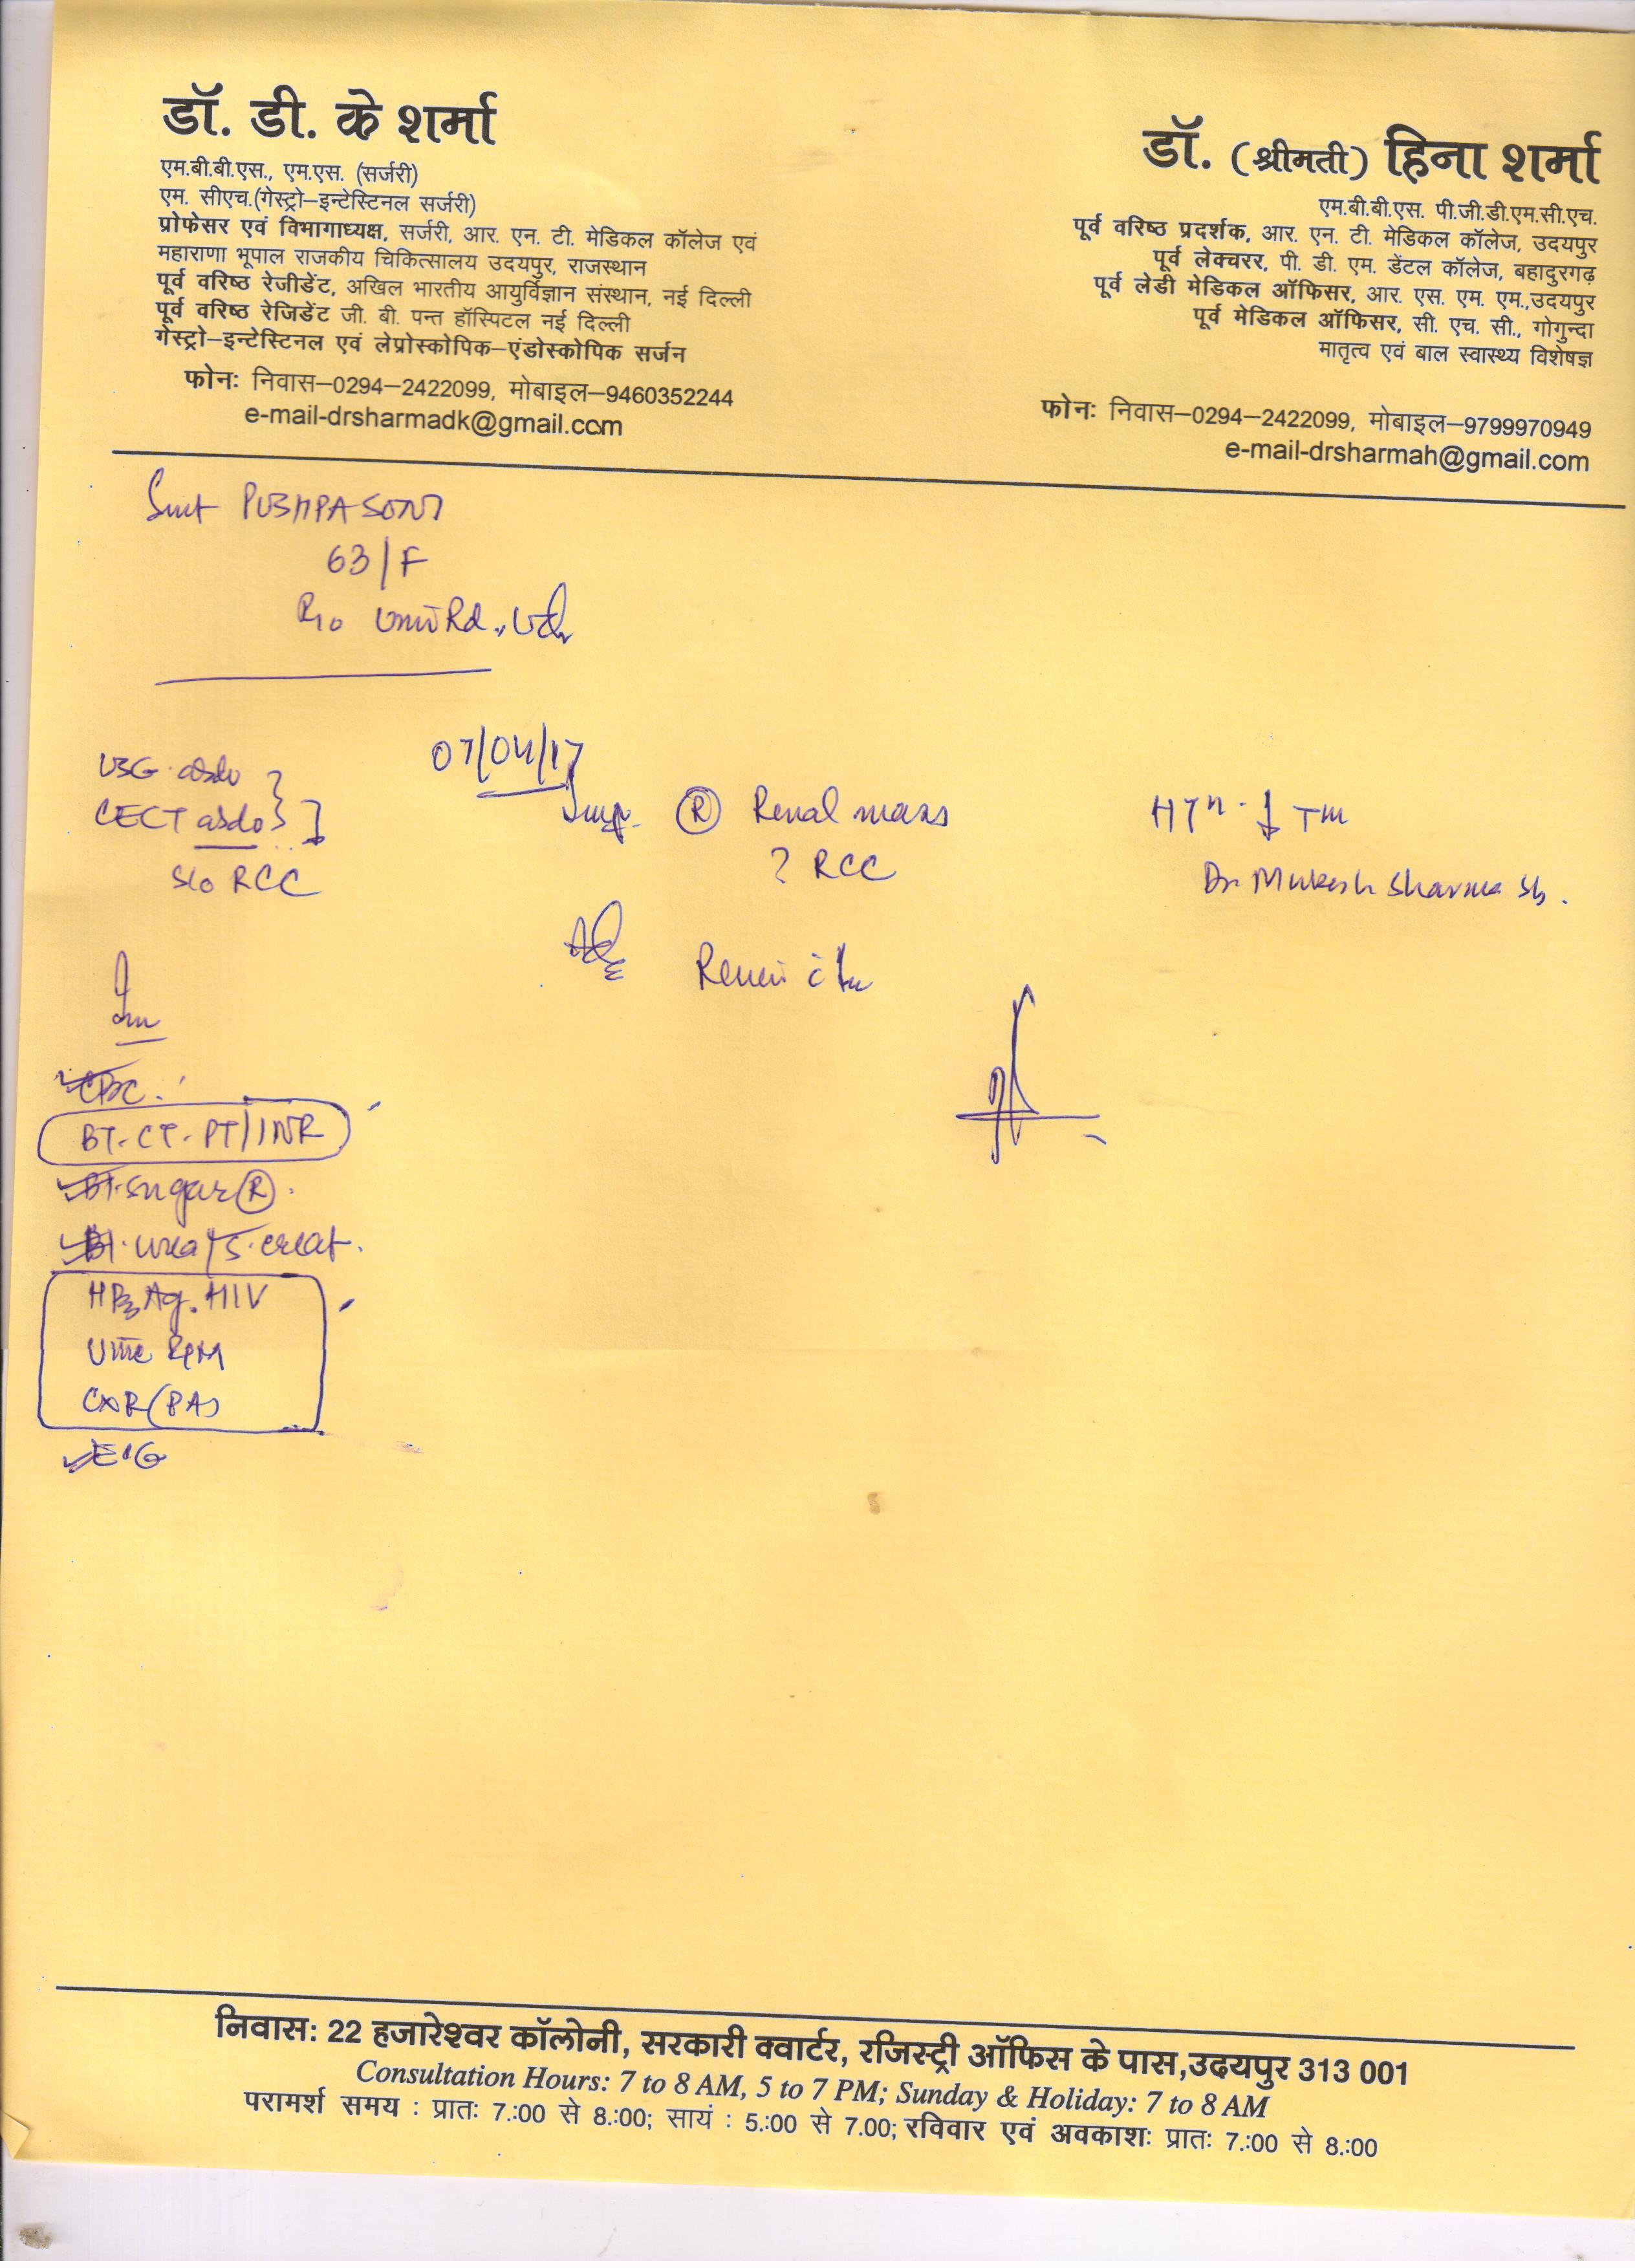 डॉ. डी. के शर्मा
एम.बी.बी.एस., एम.एस. (सर्जरी)
एम. सीएच.(गेस्ट्रो–इन्टेस्टिनल सर्जरी)
प्रोफेसर एवं विभागाध्यक्ष, सर्जरी, आर. एन. टी. मेडिकल कॉलेज एवं
महाराणा भूपाल राजकीय चिकित्सालय उदयपुर, राजस्थान
पूर्व वरिष्ठ रेजीडेंट, अखिल भारतीय आयुर्विज्ञान संस्थान, नई दिल्ली
पूर्व वरिष्ठ रेजिडेंट जी. बी. पन्त हॉस्पिटल नई दिल्ली
गेस्ट्रो–इन्टेस्टिनल एवं लेप्रोस्कोपिक–एंडोस्कोपिक सर्जन
फोनः निवास–0294–2422099, मोबाइल–9460352244
e-mail-drsharmadk@gmail.com
डॉ. (श्रीमती) हिना शर्मा
एम.बी.बी.एस. पी.जी.डी.एम.सी.एच.
पूर्व वरिष्ठ प्रदर्शक, आर. एन. टी. मेडिकल कॉलेज, उदयपुर
पूर्व लेक्चरर, पी. डी. एम. डेंटल कॉलेज, बहादुरगढ़
पूर्व लेडी मेडिकल ऑफिसर, आर. एस. एम. एम.,उदयपुर
पूर्व मेडिकल ऑफिसर, सी. एच. सी., गोगुन्दा
मातृत्व एवं बाल स्वास्थ्य विशेषज्ञ
फोनः निवास–0294–2422099, मोबाइल–9799970949
e-mail-drsharmah@gmail.com
Smt PUSHPA SONI
63/F
R/o Univ Rd., Udr
07/04/17
USG abdo
CECT abdo
S/o RCC
Imp. Ⓡ Renal mass
? RCC
HTn. Tm
Dr Mukesh Sharma Sb.
Adv
Review
Inv
CBC.
BT. CT. PT/INR
Bl. sugar Ⓡ.
Bl. urea/S. creat.
HBsAg. HIV
Urine R/M
CXR (PA)
ECG
निवास: 22 हजारेश्वर कॉलोनी, सरकारी क्वार्टर, रजिस्ट्री ऑफिस के पास,उदयपुर 313 001
Consultation Hours: 7 to 8 AM, 5 to 7 PM; Sunday & Holiday: 7 to 8 AM
परामर्श समय : प्रातः 7.:00 से 8.:00; सायं : 5.:00 से 7.00; रविवार एवं अवकाशः प्रातः 7.:00 से 8.:00